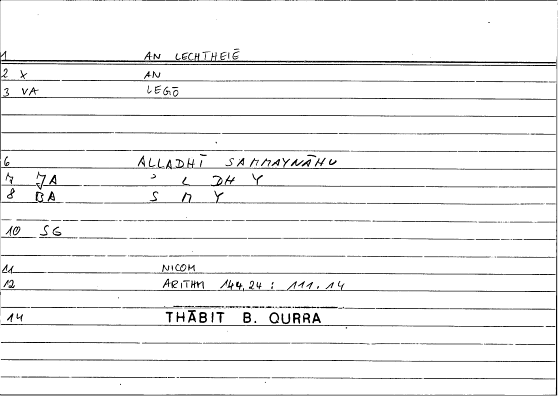 1 AN LECHTHEIĒ
2 X AN
3 VA LEGŌ
6 ALLADHĪ SAMMAYNĀHU
7 JA ' L DH Y
8 BA S M Y
10 SG
11 NICOM
12 ARITHM 144,24 : 111.14
14 THĀBIT B. QURRA